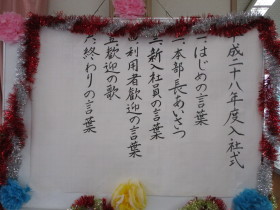 平成二十八年度入社式
一、はじめの言葉
二、本部長あいさつ
三、新入社員の言葉
四、利用者歓迎の言葉
五、歓迎の歌
六、終わりの言葉